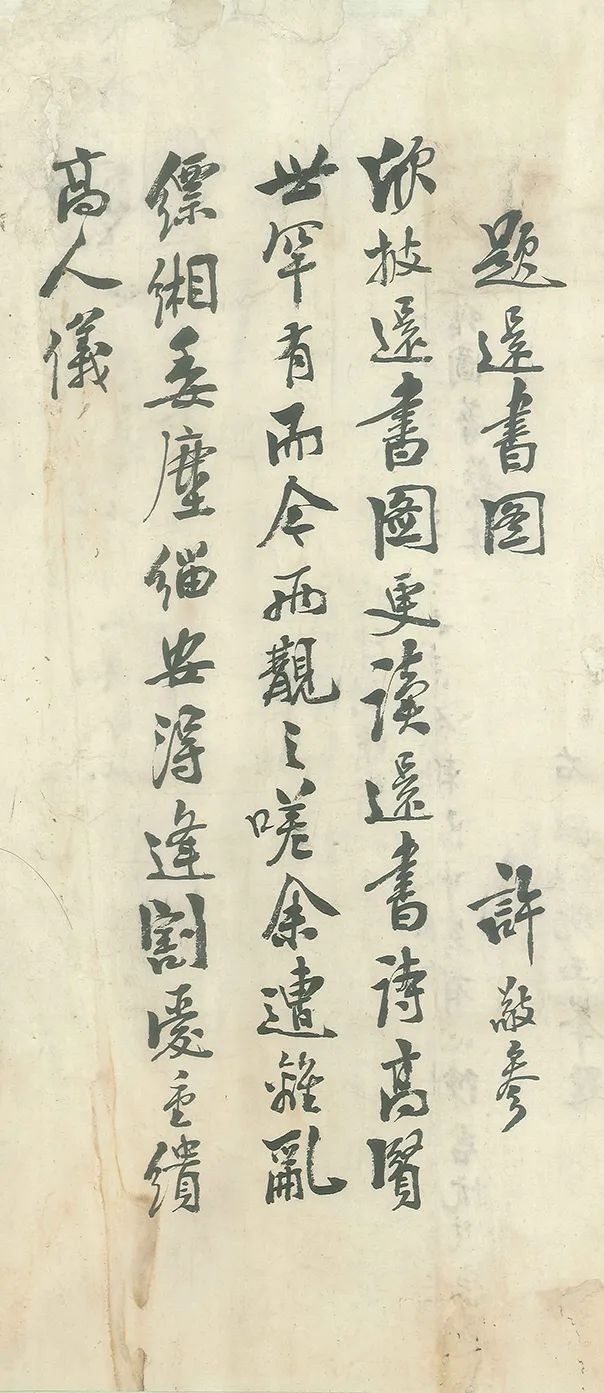 題還書圖 許敬參
欣披還書圖更讀還書詩高賢
世罕有而今兩觀之嗟余遭離亂
縹緗委塵緇安得逢割愛重繢
高人儀